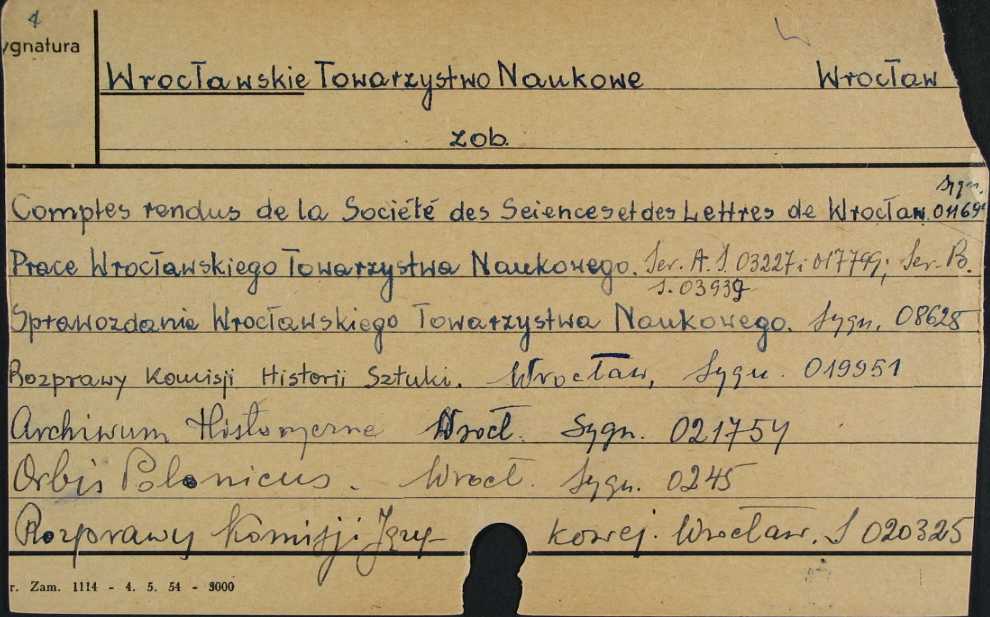 4
ygnatura
Wrocławskie Towarzystwo Naukowe Wrocław
zob.
Sygn.
Comptes rendus de la Société des Sciences et des Lettres de Wrocław. 01169
Prace Wrocławskiego Towarzystwa Naukowego. Ser. A. S. 03227 i 017799; Ser. B.
S. 03939
Sprawozdania Wrocławskiego Towarzystwa Naukowego. Sygn. 08628
Rozprawy Komisji Historii Sztuki. Wrocław, Sygn. 019951
Archiwum Historyczne Wrocł. Sygn. 021754
Orbis Polonicus. Wrocł. Sygn. 0245
Rozprawy Komisji Języ- kowej. Wrocław. S 020325
r. Zam. 1114 - 4. 5. 54 - 3000